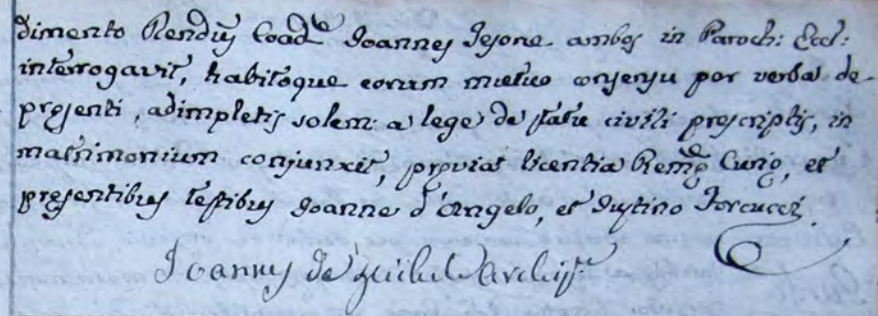 dimento Rendus Coad.e Joannes Jesone ambos in Paroch: Eccl:
interrogavit, habitoque eorum mutuo consensu per verba de
presenti, adimpletis solem: a lege de statu civili prescriptis, in
matrimonium conjunxit, previa licentia Reme Curie, et
presentibus testibus Joanne d'Angelo, et Justino Torcucci
Joannes de